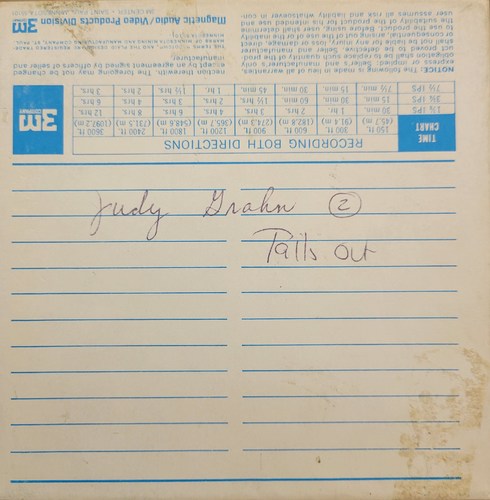 Judy Grahn ②
Tails Out
RECORDING BOTH DIRECTIONS
TIME CHART
150 ft. (45.7 m) 300 ft. (91.4 m) 600 ft. (182.8 m) 900 ft. (274.3 m) 1200 ft. (365.7 m) 1800 ft. (548.6 m) 2400 ft. (731.5 m) 3600 ft. (1097.2 m)
1⅞ IPS 30 min. 1 hr. 2 hrs. 3 hrs. 4 hrs. 6 hrs. 8 hrs. 12 hrs.
3¾ IPS 15 min. 30 min. 60 min. 1½ hrs. 2 hrs. 3 hrs. 4 hrs. 6 hrs.
7½ IPS 7½ min. 15 min. 30 min. 45 min. 1 hr. 1½ hrs. 2 hrs. 3 hrs.
3M
NOTICE: The following is made in lieu of all warranties,
express or implied: Seller's and manufacturer's only
obligation shall be to replace such quantity of the prod-
uct proved to be defective. Seller and manufacturer
shall not be liable for any injury, loss or damage, direct
or consequential, arising out of the use of or the inability
to use the product. Before using, user shall determine
the suitability of the product for his intended use and
user assumes all risk and liability whatsoever in con-
nection therewith. The foregoing may not be changed
except by an agreement signed by officers of seller and
manufacturer.
Magnetic Audio/Video Products Division
3M